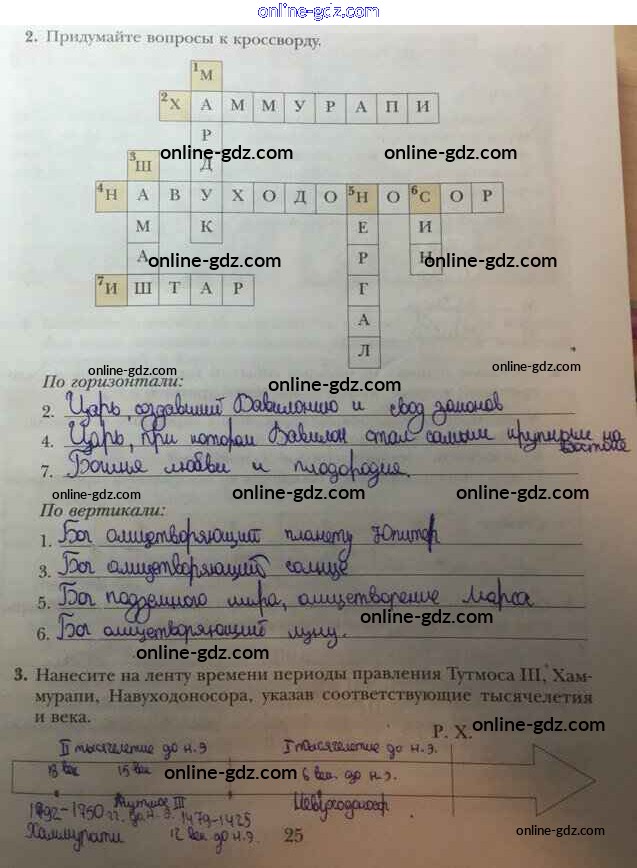 online-gdz.com
2. Придумайте вопросы к кроссворду.
1М
2Х А М М У Р А П И
Р
online-gdz.com online-gdz.com
3Ш Д
4Н А В У Х О Д О 5Н О 6С О Р
М К Е И
А online-gdz.com Р Н online-gdz.com
7И Ш Т А Р Г
А
Л
online-gdz.com online-gdz.com
По горизонтали:
online-gdz.com
2. Царь, создавший Вавилонию и свод законов
4. Царь, при котором Вавилон стал самым крупным на
востоке
7. Богиня любви и плодородия.
online-gdz.com online-gdz.com online-gdz.com
По вертикали:
1. Бог олицетворяющий планету Юпитер
3. Бог олицетворяющий солнце
online-gdz.com online-gdz.com
5. Бог подземного мира, олицетворение Марса
online-gdz.com
6. Бог олицетворяющий луну.
3. Нанесите на ленту времени периоды правления Тутмоса III, Хам-
мурапи, Навуходоносора, указав соответствующие тысячелетия
и века.
Р. Х. online-gdz.com
II тысячелетие до н.э I тысячелетие до н.э.
18 век 15 век online-gdz.com 6 век до н.э.
1792-1750 гг. до н.э. Тутмос III 1479-1425 Навуходоносор
Хаммурапи 12 век до н.э. 25 online-gdz.com
online-gdz.com